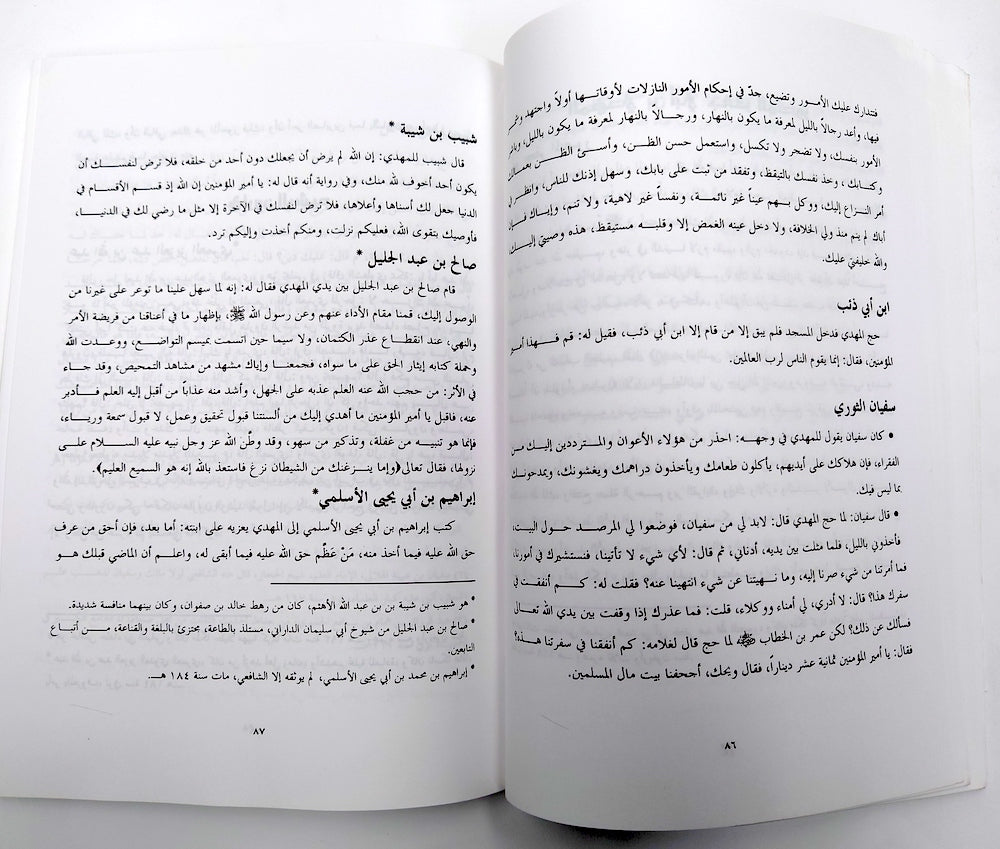 فتتدارك عليك الأمـور وتضيع، جدّ في إحكام الأمور النازلات لأوقاتـــها أولاً واجتهد
فيها، وأعد رجالاً بالليل لمعرفة ما يكون بالنهار، ورجـــالاً بالنهار لمعرفة ما يكون بالليل،
الأمور بنفسك، ولا تضجر ولا تكسل، واستعمل حسن الظـن، وأسئ الظـن بعمالك
وكتابك، وخذ نفسك بالتيقظ، وتفقد من تثبت على بابك، وسهل إذنك للناس، وانظر في
أمر النـزاع إليك، ووكل بـهم عيناً غير نائمـة، ونفساً غير لاهية، ولا تنم، وإيـاك فـإن
أباك لم ينم منذ ولي الخلافة، ولا دخل عينه الغمض إلا وقلبـه مستيقظ، هذه وصيتي إليـك،
والله خليفتي عليك.
ابن أبي ذئب
حج المهدي فدخل المسجد فلم يبق إلا من قام إلا ابن أبي ذئب، فقيل له: قم فـهذا أمـير
المؤمنين، فقال: إنما يقوم الناس لرب العالمين.
سفيان الثوري
• كان سفيان يقول للمهدي في وجهـه: احذر من هؤلاء الأعوان والمـترددين إليـك مـن
الفقراء، فإن هلاكك على أيديهم، يأكلون طعامك ويأخذون دراهمك ويغشونك، ويمدحونـك
بما ليس فيك.
• قال سفيان: لما حج المهدي قال: لابد لي من سفيان، فوضعوا لي المرصد حول البيت،
فأخذوني بالليل، فلما مثلت بين يديه، أدناني، ثم قال: لأي شيء لا تأتينا، فنستشيرك في أمورنا،
فما أمرتنا من شيء صرنا إليه، وما نـهيتنا عن شيء انتهينا عنه؟ فقلت له: كـم أنفقت في
سفرك هذا؟ قال: لا أدري، لي أمناء ووكلاء، قلت: فما عذرك إذا وقفت بين يدي الله تعالى
فسألك عن ذلك؟ لكن عمر بن الخطاب ﷺ لما حج قال لغلامه: كم أنفقنا في سفرتنا هذه؟
فقال: يا أمير المؤمنين ثمانية عشر ديناراً، فقال ويحك، أجحفنا بيت مال المسلمين.
٨٦
شبيب بن شيبة *
قال شبيب للمهدي: إن الله لم يرض أن يجعلك دون أحد من خلقه، فلا ترض لنفسـك أن
يكون أحد أخوف لله منك، وفي رواية أنه قال له: يا أمير المؤمنين إن الله إذ قسـم الأقسام في
الدنيا جعل لك أسناها وأعلاها، فلا ترض لنفسك في الآخرة إلا مثل ما رضي لك في الدنيـا،
فأوصيك بتقوى الله، فعليكم نزلت، ومنكم أخذت وإليكم ترد.
صالح بن عبد الجليل *
قام صالح بن عبد الجليل بين يدي المهدي فقال له: إنه لما سهل علينا ما توعر على غيرنا من
الوصول إليك، قمنا مقام الأداء عنهم وعن رسول الله ﷺ، بإظهار ما في أعناقنا من فريضة الأمر
والنهي، عند انقطـاع عذر الكتمان، ولا سيما حين اتسمت بميسم التواضـع، ووعدت الله
وحملة كتابه إيثار الحق على ما سواه، فجمعنـا وإياك مشهد من مشاهد التمحيص، وقد جـاء
في الأثر: من حجب الله عنه العلم عذبه على الجهل، وأشد منه عذاباً من أقبل إليه العلم فـأدبر
عنه، فاقبل يا أمير المؤمنين ما أهدي إليك من ألسنتنا قبول تحقيق وعمل، لا قبول سمعة وريـاء،
فإنما هو تنبيـه من غفلة، وتذكير من سهو، وقد وطّن الله عز وجل نبيه عليه السـلام علـى
نزولها، فقال تعالى(وإما ينـزغنك من الشيطان نزغ فاستعذ بالله إنه هو السميع العليم).
إبراهيم بن أبي يحيى الأسلمي*
كتب إبراهيم بن أبي يحيى الأسلمي إلى المهدي يعزيه على ابنته: أما بعد، فإن أحق من عرف
حق الله عليه فيما أخذ منه، مَنْ عَظّم حق الله عليه فيما أبقى له، واعلـم أن الماضي قبلك هـو
* هو شبيب بن شيبة بن بن عبد الله الأهتم، كان من رهط خالد بن صفوان، وكان بينهما منافسة شديدة.
* صالح بن عبد الجليل من شيوخ أبي سليمان الداراني، مستلذ بالطاعة، مجتزئ بالبلغة والقناعة، مـــن أتبـاع
التابعين.
* إبراهيم بن محمد بن أبي يحيى الأسلمي، لم يوثقه إلا الشافعي، مات سنة ١٨٤ هـ.
٨٧